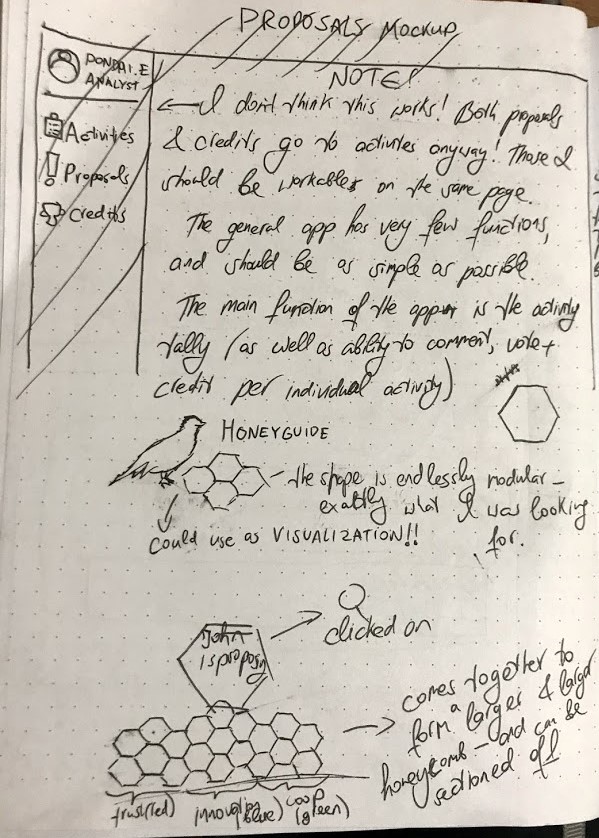 PROPOSALS MOCKUP
PONDAI.E
ANALYST
Activities
Proposals
Credits
NOTE!
I don't think this works! Both proposals
& credits go to activities anyway! Those 2
should be workable on the same page.
The general app has very few functions,
and should be as simple as possible.
The main function of the app is the activity
tally (as well as ability to comment, vote +
credit per individual activity)
HONEYGUIDE
the shape is endlessly modular -
exactly what I was looking
for.
could use as VISUALIZATION!!
John
is proposing
clicked on
comes together to
form a larger & larger
honeycomb - and can be
sectioned off
trust(red) innovation(blue) coop
(green)